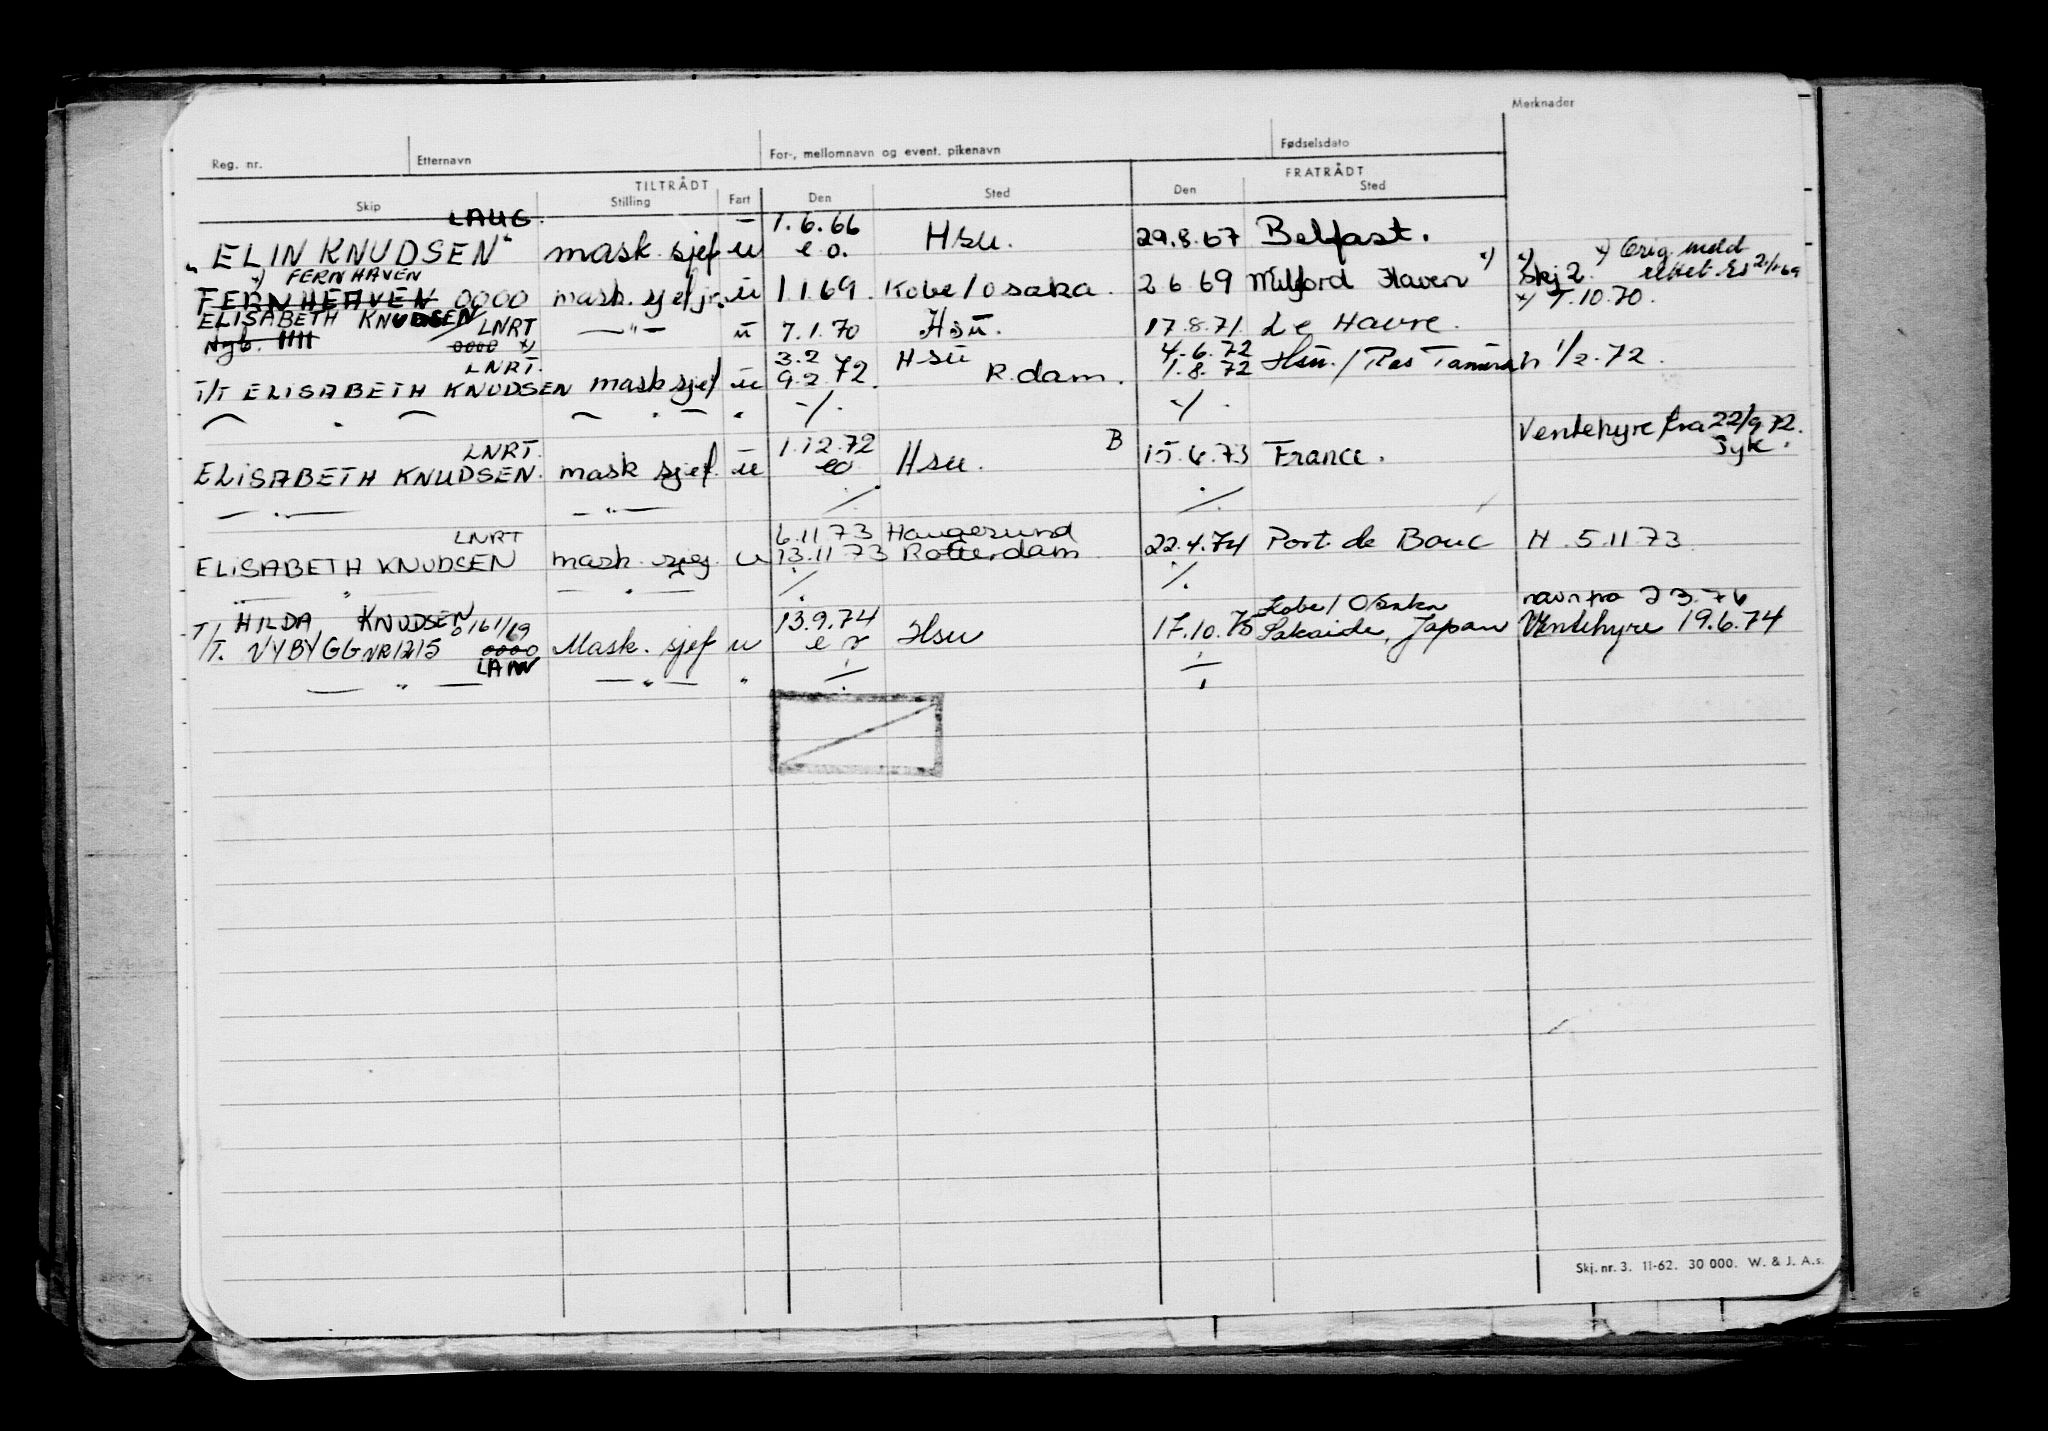 Merknader
Reg. nr. Etternavn For-, mellomnavn og event. pikenavn Fødselsdato
TILTRÅDT FRATRÅDT
Skip Stilling Fart Den Sted Den Sted
LAUG. 1.6.66
"ELIN KNUDSEN" mask. sjef u e o. Hsu. 29.8.67 Belfast.
x) FERNHAVEN x) Orig. meld
FERNHEAVEN 0000 mask. sjef jr. u 1.1.69. Kobe/Osaka. 2 6 69 Milford Haven x) Skj 2. rettet
ELISABETH KNUDSEN x) T.10.70.
Nyb. 1111 LNRT —"— u 7.1.70 Hsu. 17.8.71 Le Havre.
0000 x)
LNRT. 3.2 Hsu 4.6.72
T/T ELISABETH KNUDSEN mask sjef u 9.2 72. R.dam. 1.8.72 Hsu./Ras Tanurah 1/2.72.
— " — — " — " ./. ./.
Ventehyre fra 22/9.72.
LNRT. 1.12.72 B Syk.
ELISABETH KNUDSEN. mask sjef. u eo Hsu. 15.6.73 France.
— " — — " — ./. ./.
LNRT 6.11 73 Haugesund
ELISABETH KNUDSEN mask. sjef. u 13.11 73 Rotterdam 22.4.74 Port de Bouc H. 5.11 73
" — " — " — ./. ./.
T/ HILDA KNUDSEN 13.9.74 Kobe/Osaka navn fra 2 3.76
/T. NYBYGG NR 1215 0000 Mask. sjef u e o Hsu 17.10.75 Sakaide, Japan Ventehyre 19.6.74
LAMN
— " — — " — " ./. ./.
Skj. nr. 3. 11-62. 30 000. W. & J. A.s.